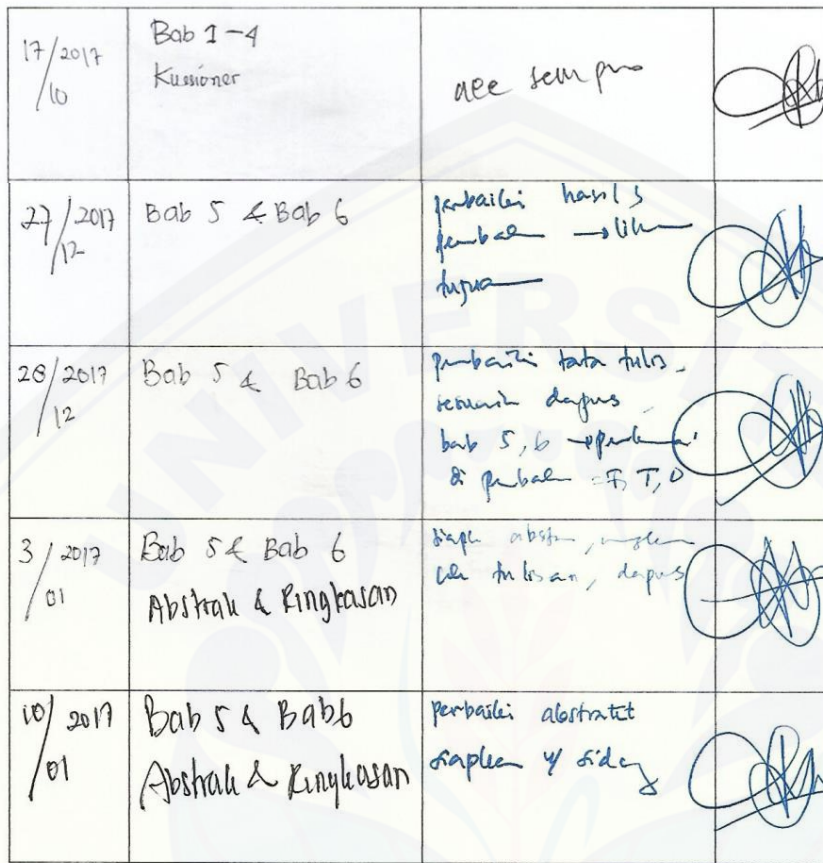 17/10 2017
Bab 1-4
Kussioner
acc sempro
27/12 2017
Bab 5 & Bab 6
perbaiki hasil &
pembahasan → lihat
tujuan
28/12 2017
Bab 5 & Bab 6
perbaiki tata tulis
sesuain dapus
bab 5, 6 →
di pembahasan = F, T, O
3/01 2017
Bab 5 & Bab 6
Abstrak & Ringkasan
siapk abstrak,
cek tulisan, dapus
10/01 2017
Bab 5 & Bab 6
Abstrak & Ringkasan
perbaiki abstrakt
siapkan u/ sidang
UNIVERSIT